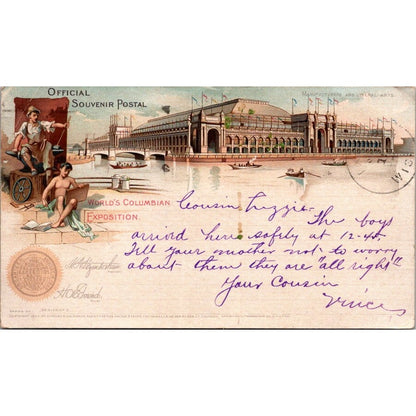 OFFICIAL
SOUVENIR POSTAL
MANUFACTURES AND LIBERAL ARTS.
WORLD'S COLUMBIAN
EXPOSITION.
Cousin Lizzie.
The boys
arrived here safely at 12-45.
Tell your mother not to worry
about them they are "all right"
Your Cousin
Vince